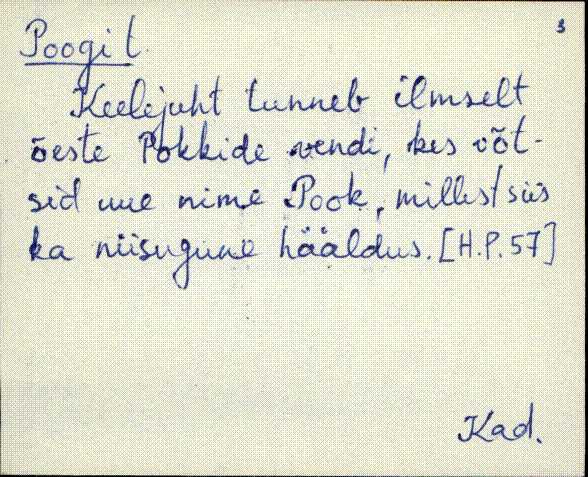 3
Poogi t.
Keelejuht tunneb ilmselt
õeste Pokkide vendi, kes võt-
sid uue nime Pook, millest siis
ka niisugune hääldus. [H.P. 57]
Kad.